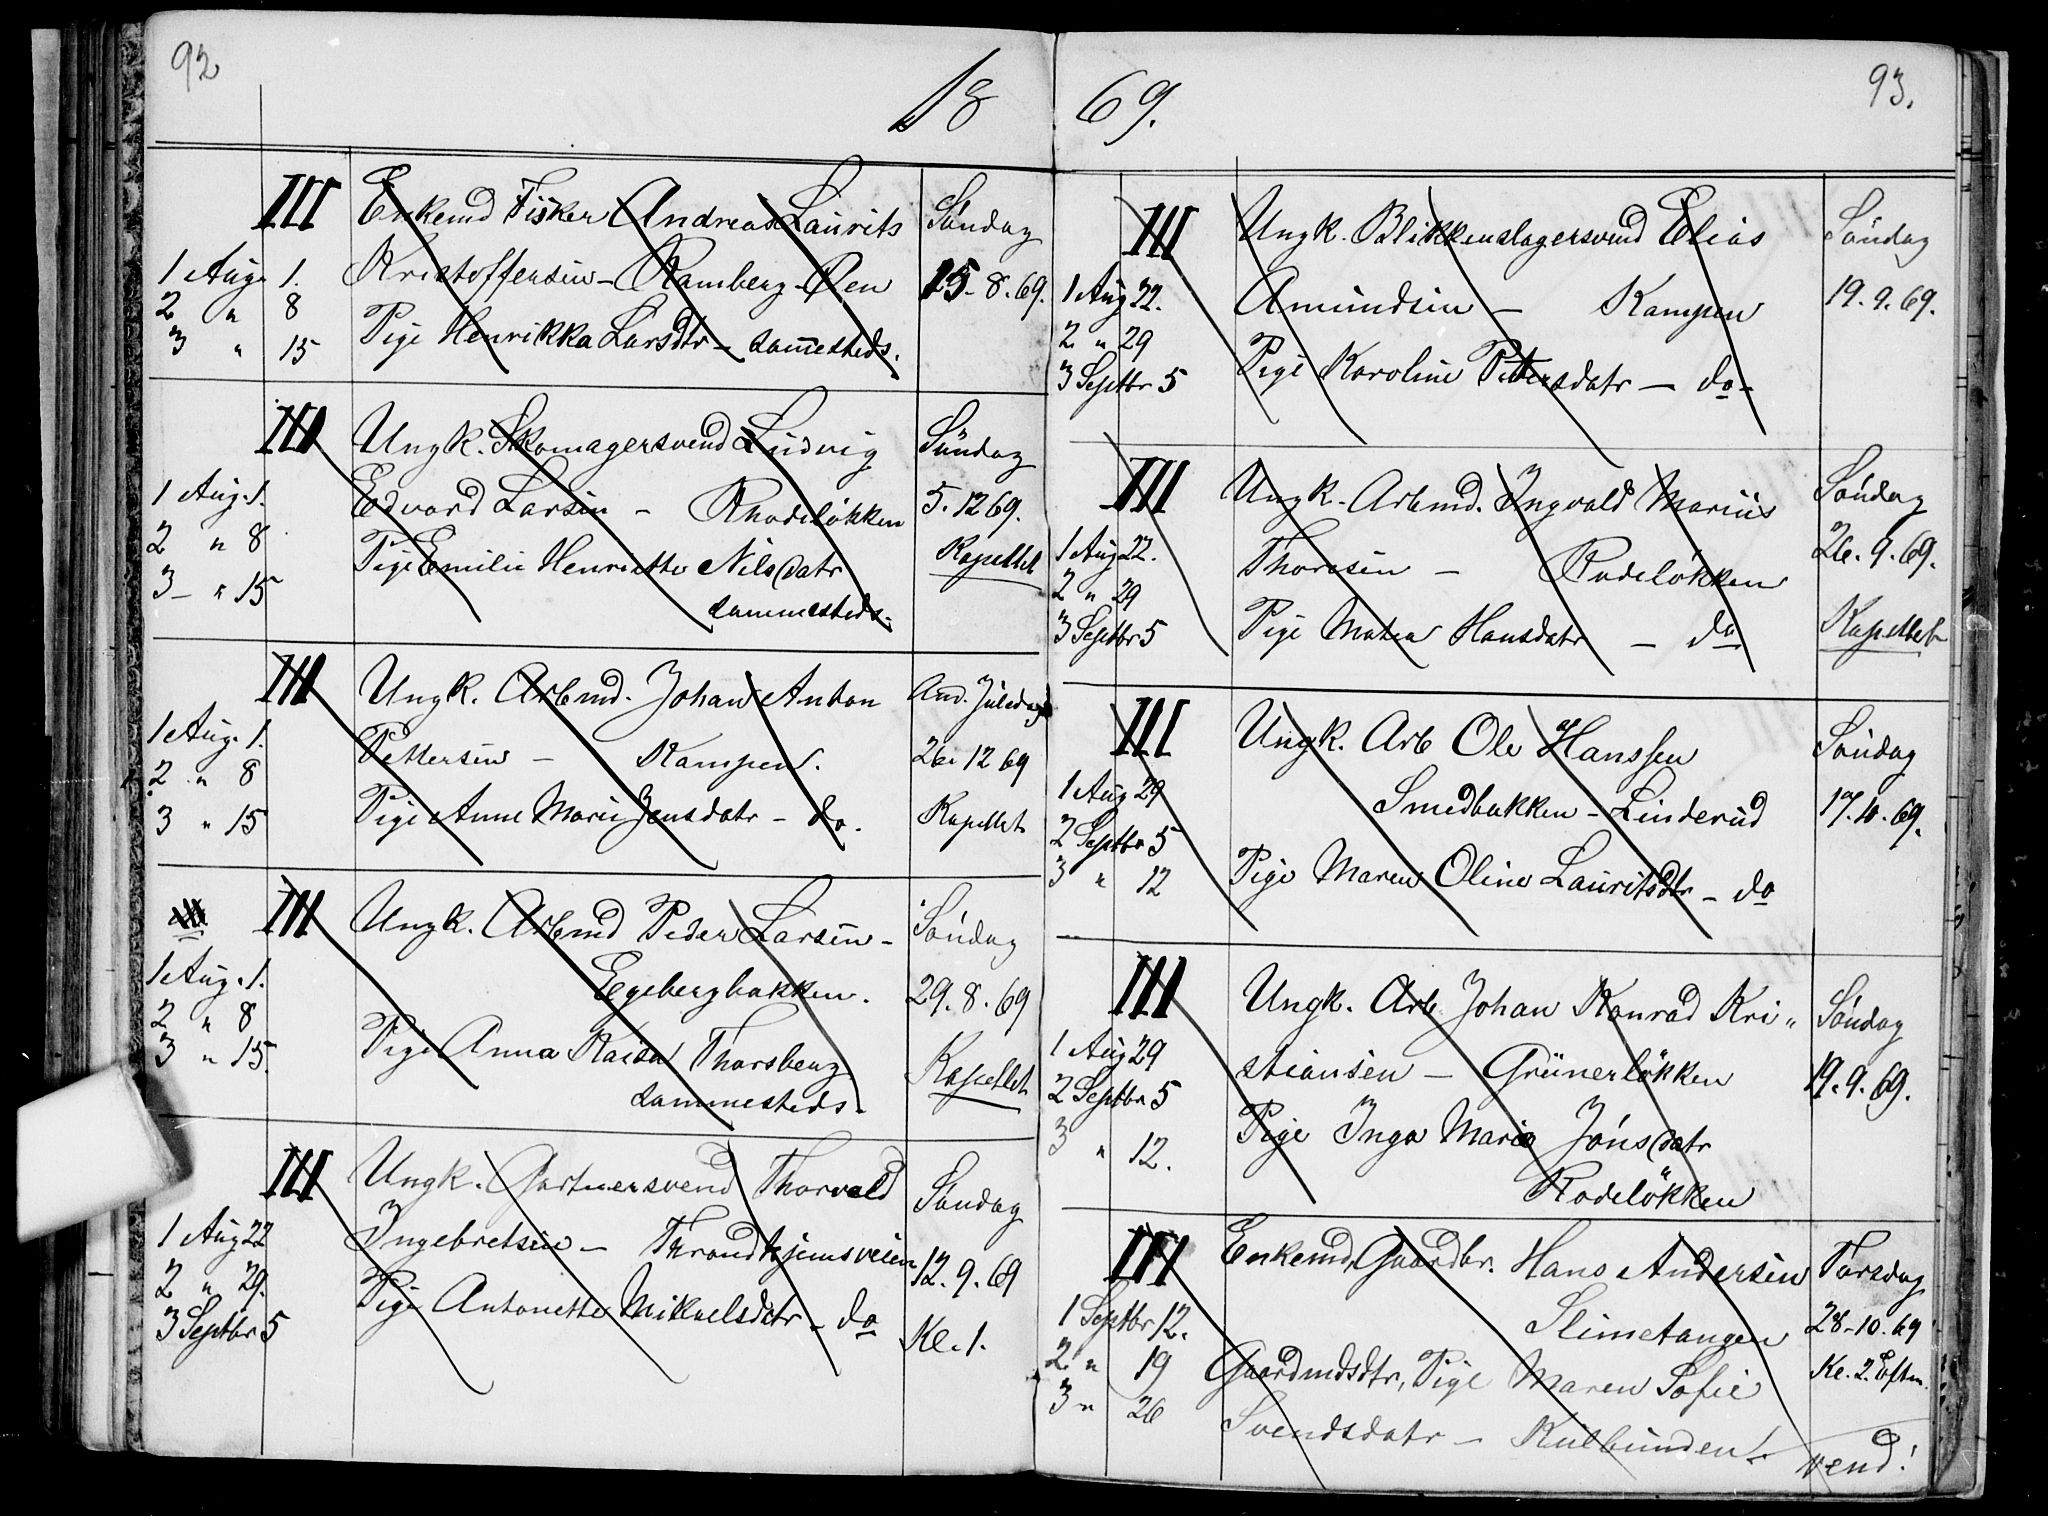 92
18
III Enkemd Fisker Andreas Laurits
Søndag
1 Aug. 1. Kristoffersen - Ramberg-Øen 15-8.69.
2 " 8
3 " 15 Pige Henrikka Larsdtr - sam̅esteds.
III Ungk. Skomagersvend Ludvig
Søndag
1 Aug. 1. Edvard Larsen - Rhodeløkken 5.12 69.
2 " 8 Pige Emilie Henriette Nilsdatr Kapellet
3 - " 15 sammesteds.
III Ungk. Arbmd. Johan Anton And. Juledag
1 Aug. 1. Pettersen - Kampen. 26. 12 69
2 " 8
3 " 15 Pige Anne Marie Jensdatr - do. Kapellet
III Ungk. Arbmd Peder Larsen - Søndag
1 Aug. 1. Egebergbakken. 29.8.69
2 " 8
3 " 15. Pige Anna Kaisa Thorsberg Kapellet
sammesteds.
III Ungk. Gartnersvend Thorvald Søndag
1 Aug 22 Ingebretsen - Throndhjemsveien 12.9.69
2 " 29.
3 Septbr 5 Pige Antonette Mikaelsdatr - do Kl. 1.
69.
93.
III Ungk. Blikkenslagersvend Elias Søndag
1 Aug 22. Amundsen - Kampen 19.9.69.
2 " 29
3 Septbr 5 Pige Karoline Petersdatr - do -
III Ungk. Arbmd. Ingvald Marius Søndag
1 Aug 22. Thoresen - Rodeløkken 26.9.69.
2 " 29
3 Septbr 5 Pige Matea Hansdatr - do Kapellet
III Ungk. Arb Ole Hanssen Søndag
1 Aug 29 Smedbakken - Linderud 17.10.69.
2 Septbr 5
3 " 12 Pige Maren Oline Lauritsdtr - do
III Ungk. Arb. Johan Konrad Kri" Søndag
1 Aug 29 stiansen - Grünerløkken 19.9.69.
2 Septbr 5
3 " 12. Pige Inga Maria Jónsdatr
Rodeløkken
III Enkemd, Gaardbr. Hans Andersen Torsdag
1 Septbr 12. Slimetangen 28-10.69
2 " 19 Gaardmdsdtr, Pige Maren Sofie Kl. 2. Eftm.
3 " 26 Svendsdatr - Kulbunden!
vend!